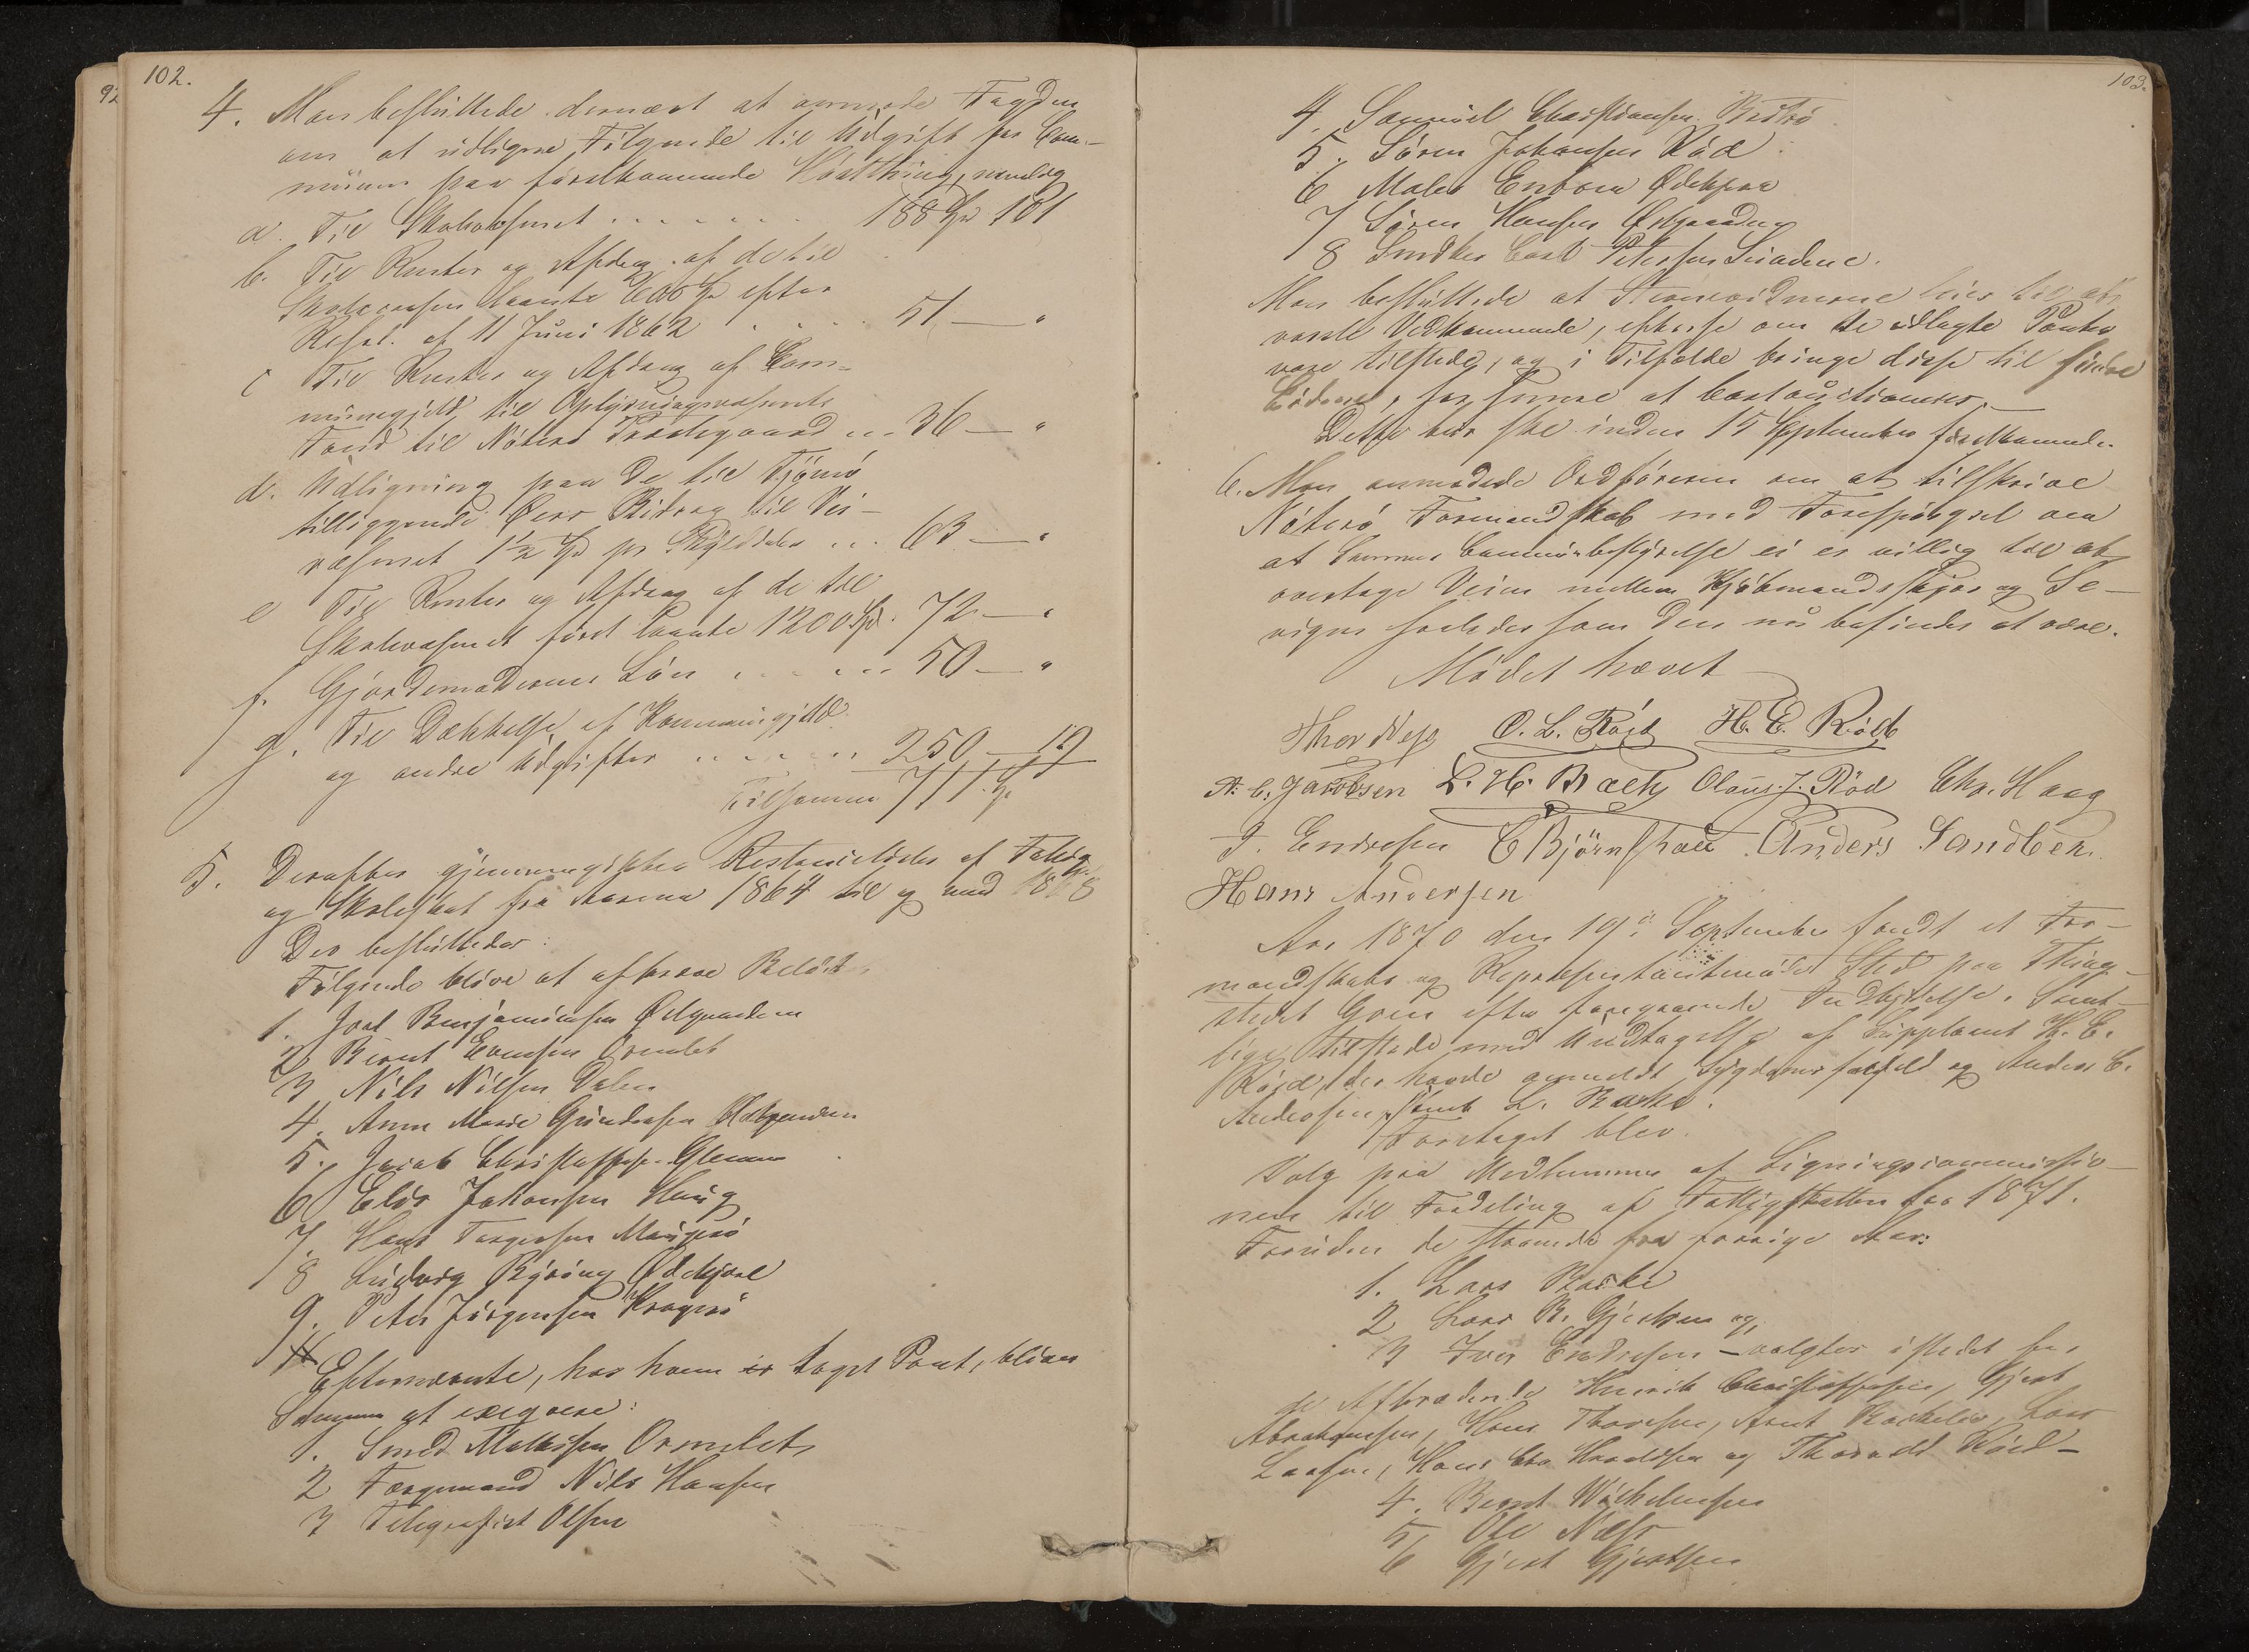 102.
4. Man besluttede dernæst at anmode Fogden
om at udligne Følgende til Udgift for Com-
munen paa førstkommende Høstthing, nemlig
a. Til Skolevæsenet . . . . . . . 188 Spd 101
b. Til Renter og Afdrag af de til
Skolevæsen laante 600 Spd efter
Resol. af 11 Juni 1862 . . . . 51 — "
c Til Renter og Afdrag af Com-
munegjeld til Oplysningsvæsenets
Fond til Nøterø Præstegaard ... 36 — "
d. Udligning paa de til Tjømø
tilliggende Øers Bidrag til Vei-
væsenet 1½ Spd pr Skylddaler ... 63 — "
e Til Renter og Afdrag af de til
Skolevæsenet først laante 1200 Spd. 72 — "
f. Gjordemoderens Løn . . . . . 50 — "
g. Til Dækkelse af Kommunegjeld
og andre Udgifter . . . . . . 250 — 19
Tilsammen 711 Spd
5. Derefter gjennemgikkes Restancelister af Fattig
og Skoleskat fra Aarene 1864 til og med 1868
Der besluttedes:
Følgende blive at afskrive
1. Joel Benjaminsen Ødegaarden
2 Bernt Evensen Ormelet
3 Nils Nilsen Dalen
4. Anne Marie Gundersen
5. Jacob Christoffersen
6 Elis Johansen Haug
7 Hans Torgersen
8 Ludvig Ødekjære
9. Peter Jørgensen Kragerø
Efternævnte, hos hvem er taget Pant, bliver
Samme at exeqvere:
1. Smed Mathisen Ormelet
2 Færgemand Nils Hansen
3 Telegrafist Olsen
103.
4. Samuel Christiansen
5. Søren Johansen Rød
6 Maler Enbom Ødekjær
7 Søren Hansen Ødegaarden
8 Snedker Carl Petersen
Man besluttede at Stevnevidnerne
varsle Vedkommende, efterse om de udlagte Panter
vare tilstede, og i Tilfælde bringe disse til
for Senere at bortauctioneres. —
Dette bør ske inden 15 September førstkommende.
6. Man anmodede Ordføreren om at tilskrive
Nøterø Formandskab med Forespørgsel om
at Sammes Communebestyrelse ei er villig til at
overtage Veien mellem Kjøbmandsskjær og
saaledes som den nu befindes at være.
Mødet hævet —
O. L. Røed H. E. Rød
A. C. Jacobsen L. H. Olaus J. Rød Chr. Haag
I. Endresen C Bjørnskau Anders Sandbek
Hans Andersen
Aar 1870 den 19de September fandt et For-
mandskabs og Repræsentantmøde Sted paa Thing-
stedet Grim efter foregaaende Indbydelse. Samt-
lige tilstede med Undtagelse af Supleant H. E.
Røed, der havde anmeldt Sygdomsforfald og Anders C.
Andersen, samt L. Bache.
Foretaget blev.
Valg paa Medlemmer af Ligningscommissio-
nen til Fordeling af Fattigskatten for 1871.
Foruden de staaende fra forrige Aar:
1. Lars Bache
2 Lars B. Gjertsen og
3 Iver Endresen — valgtes istedet for
de Aftrædende Henrik Christoffersen, Gjert
Abrahamsen, Hans Thoresen, Arnt Lars
Larsen, Hans Chr. og Thorvald Røed —
4. Bernt
5. Ole Næss
6 Gjert Gjertsen